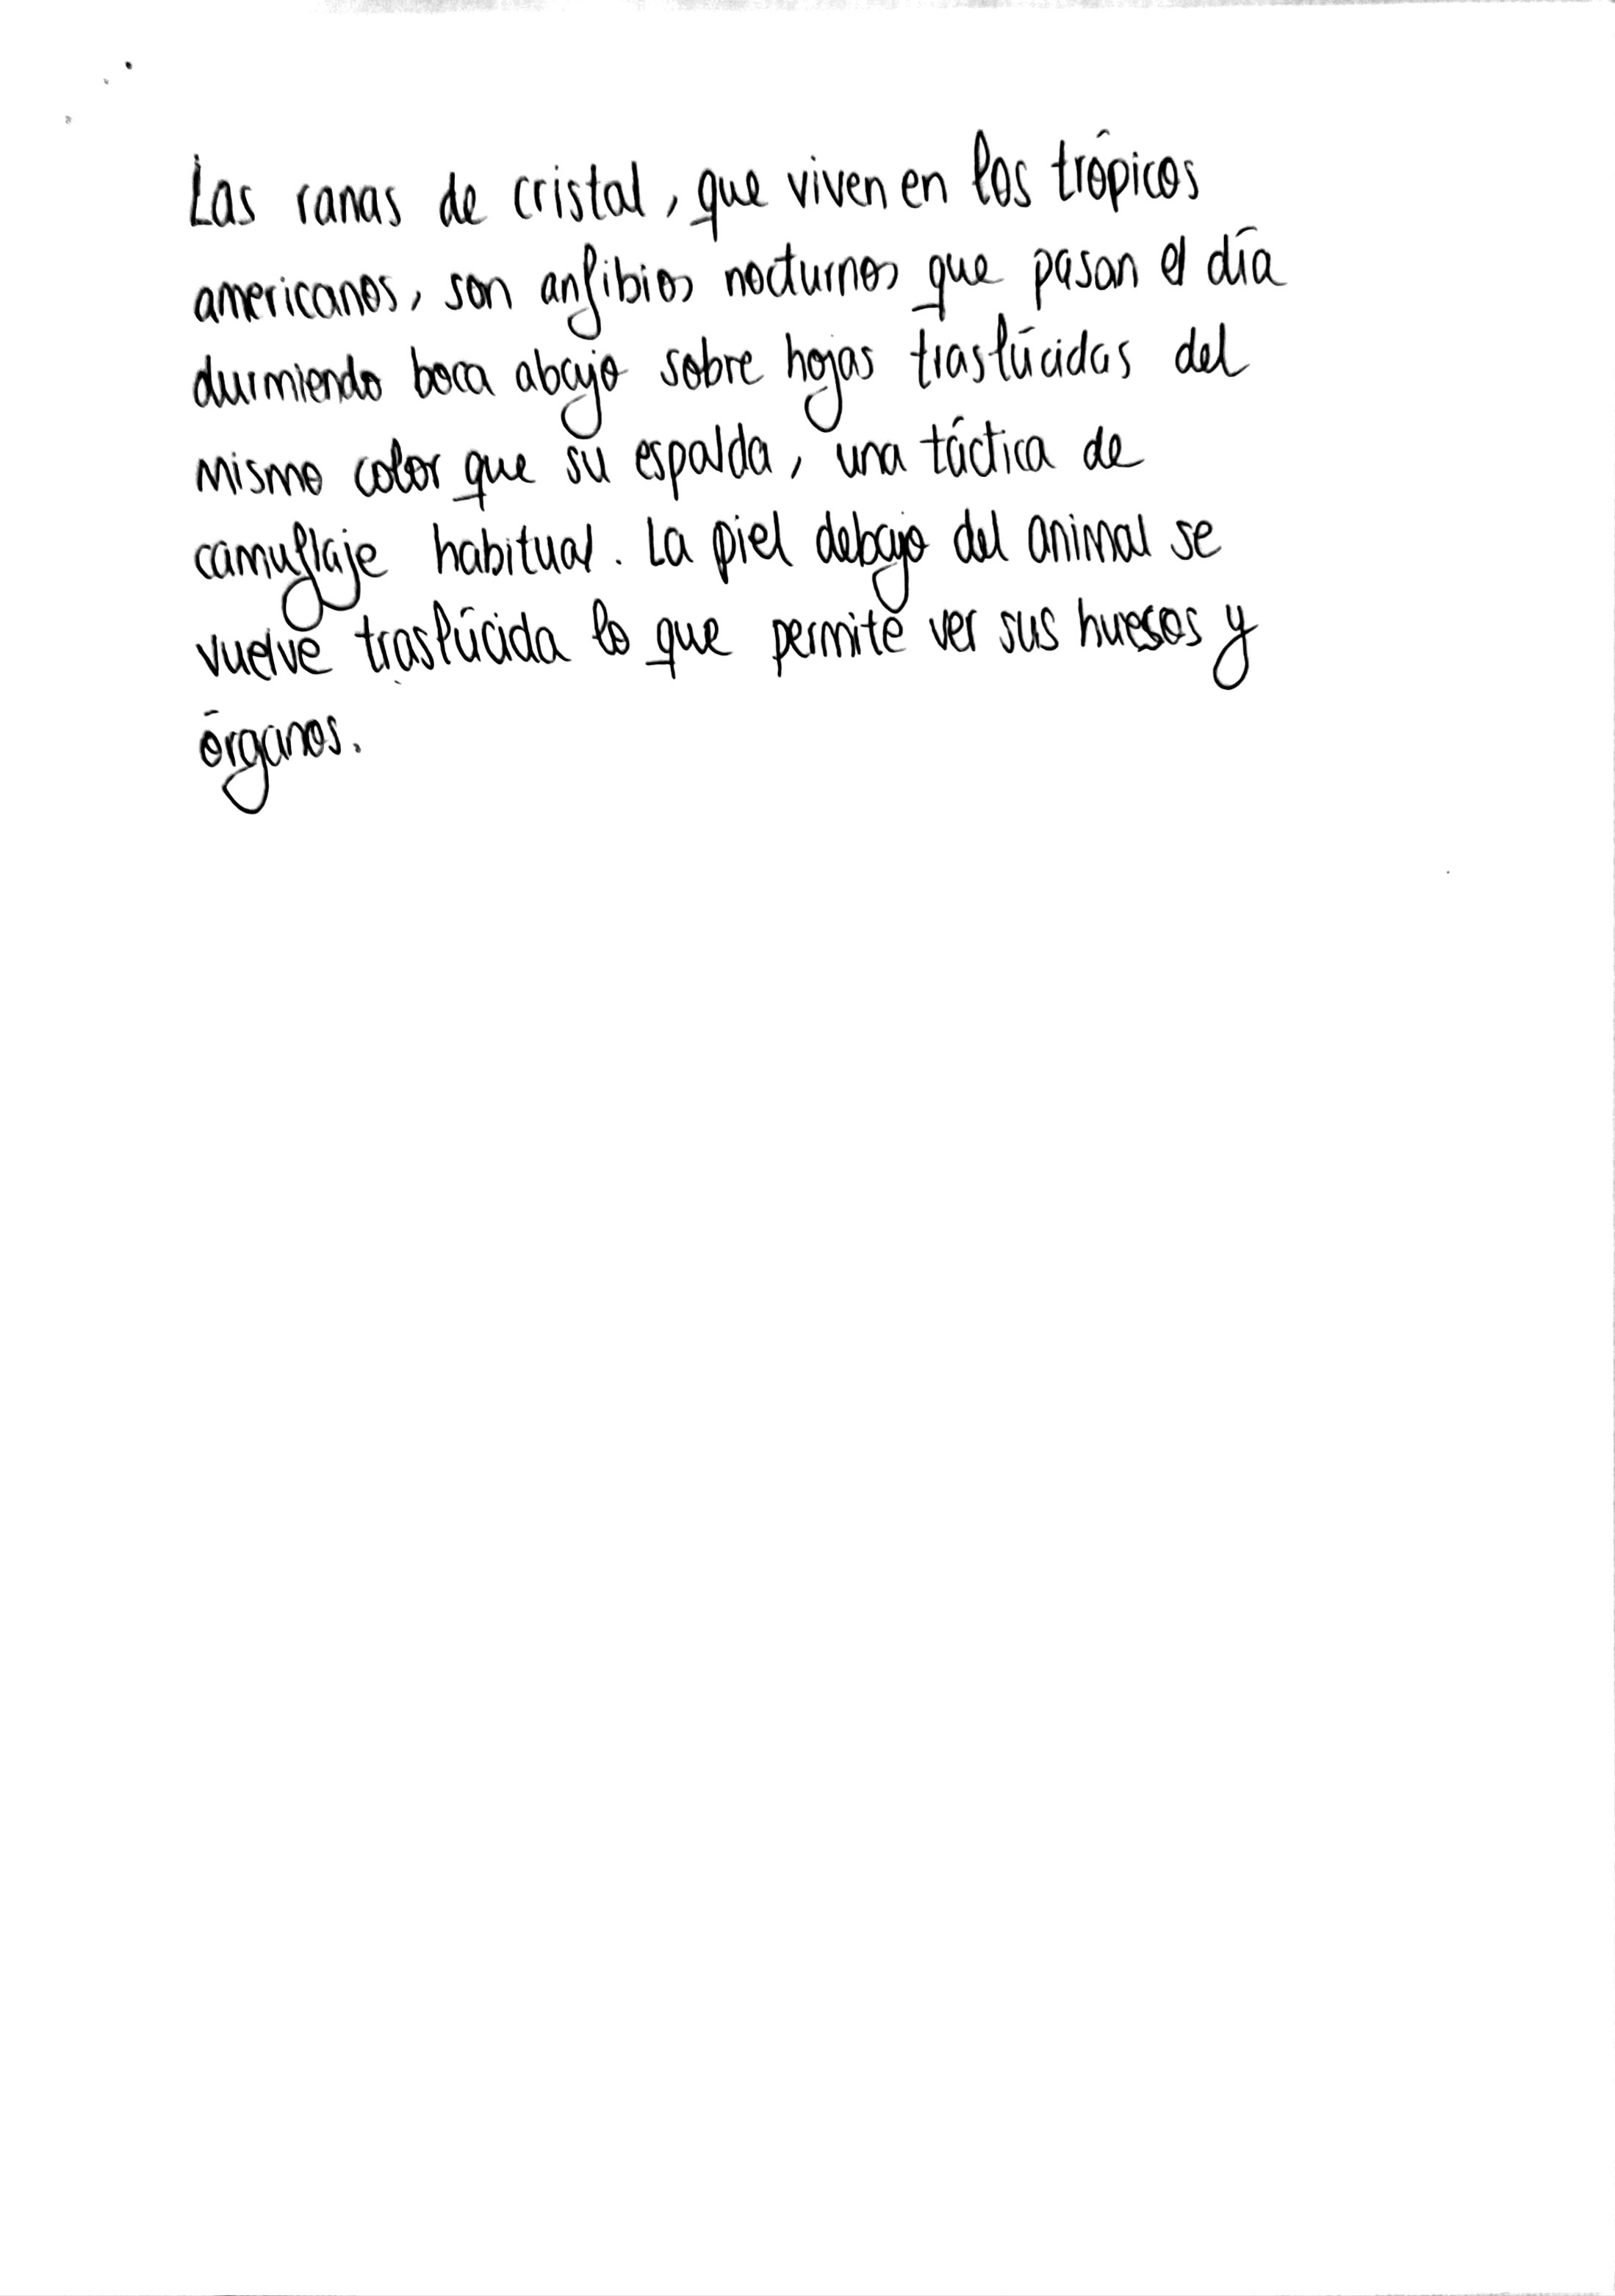 Las ranas de cristal, que viven en los trópicos
americanos, son anfibios nocturnos que pasan el día
durmiendo boca abajo sobre hojas traslúcidas del
mismo color que su espalda, una táctica de
camuflaje habitual. La piel debajo del animal se
vuelve traslúcida lo que permite ver sus huesos y
órganos.